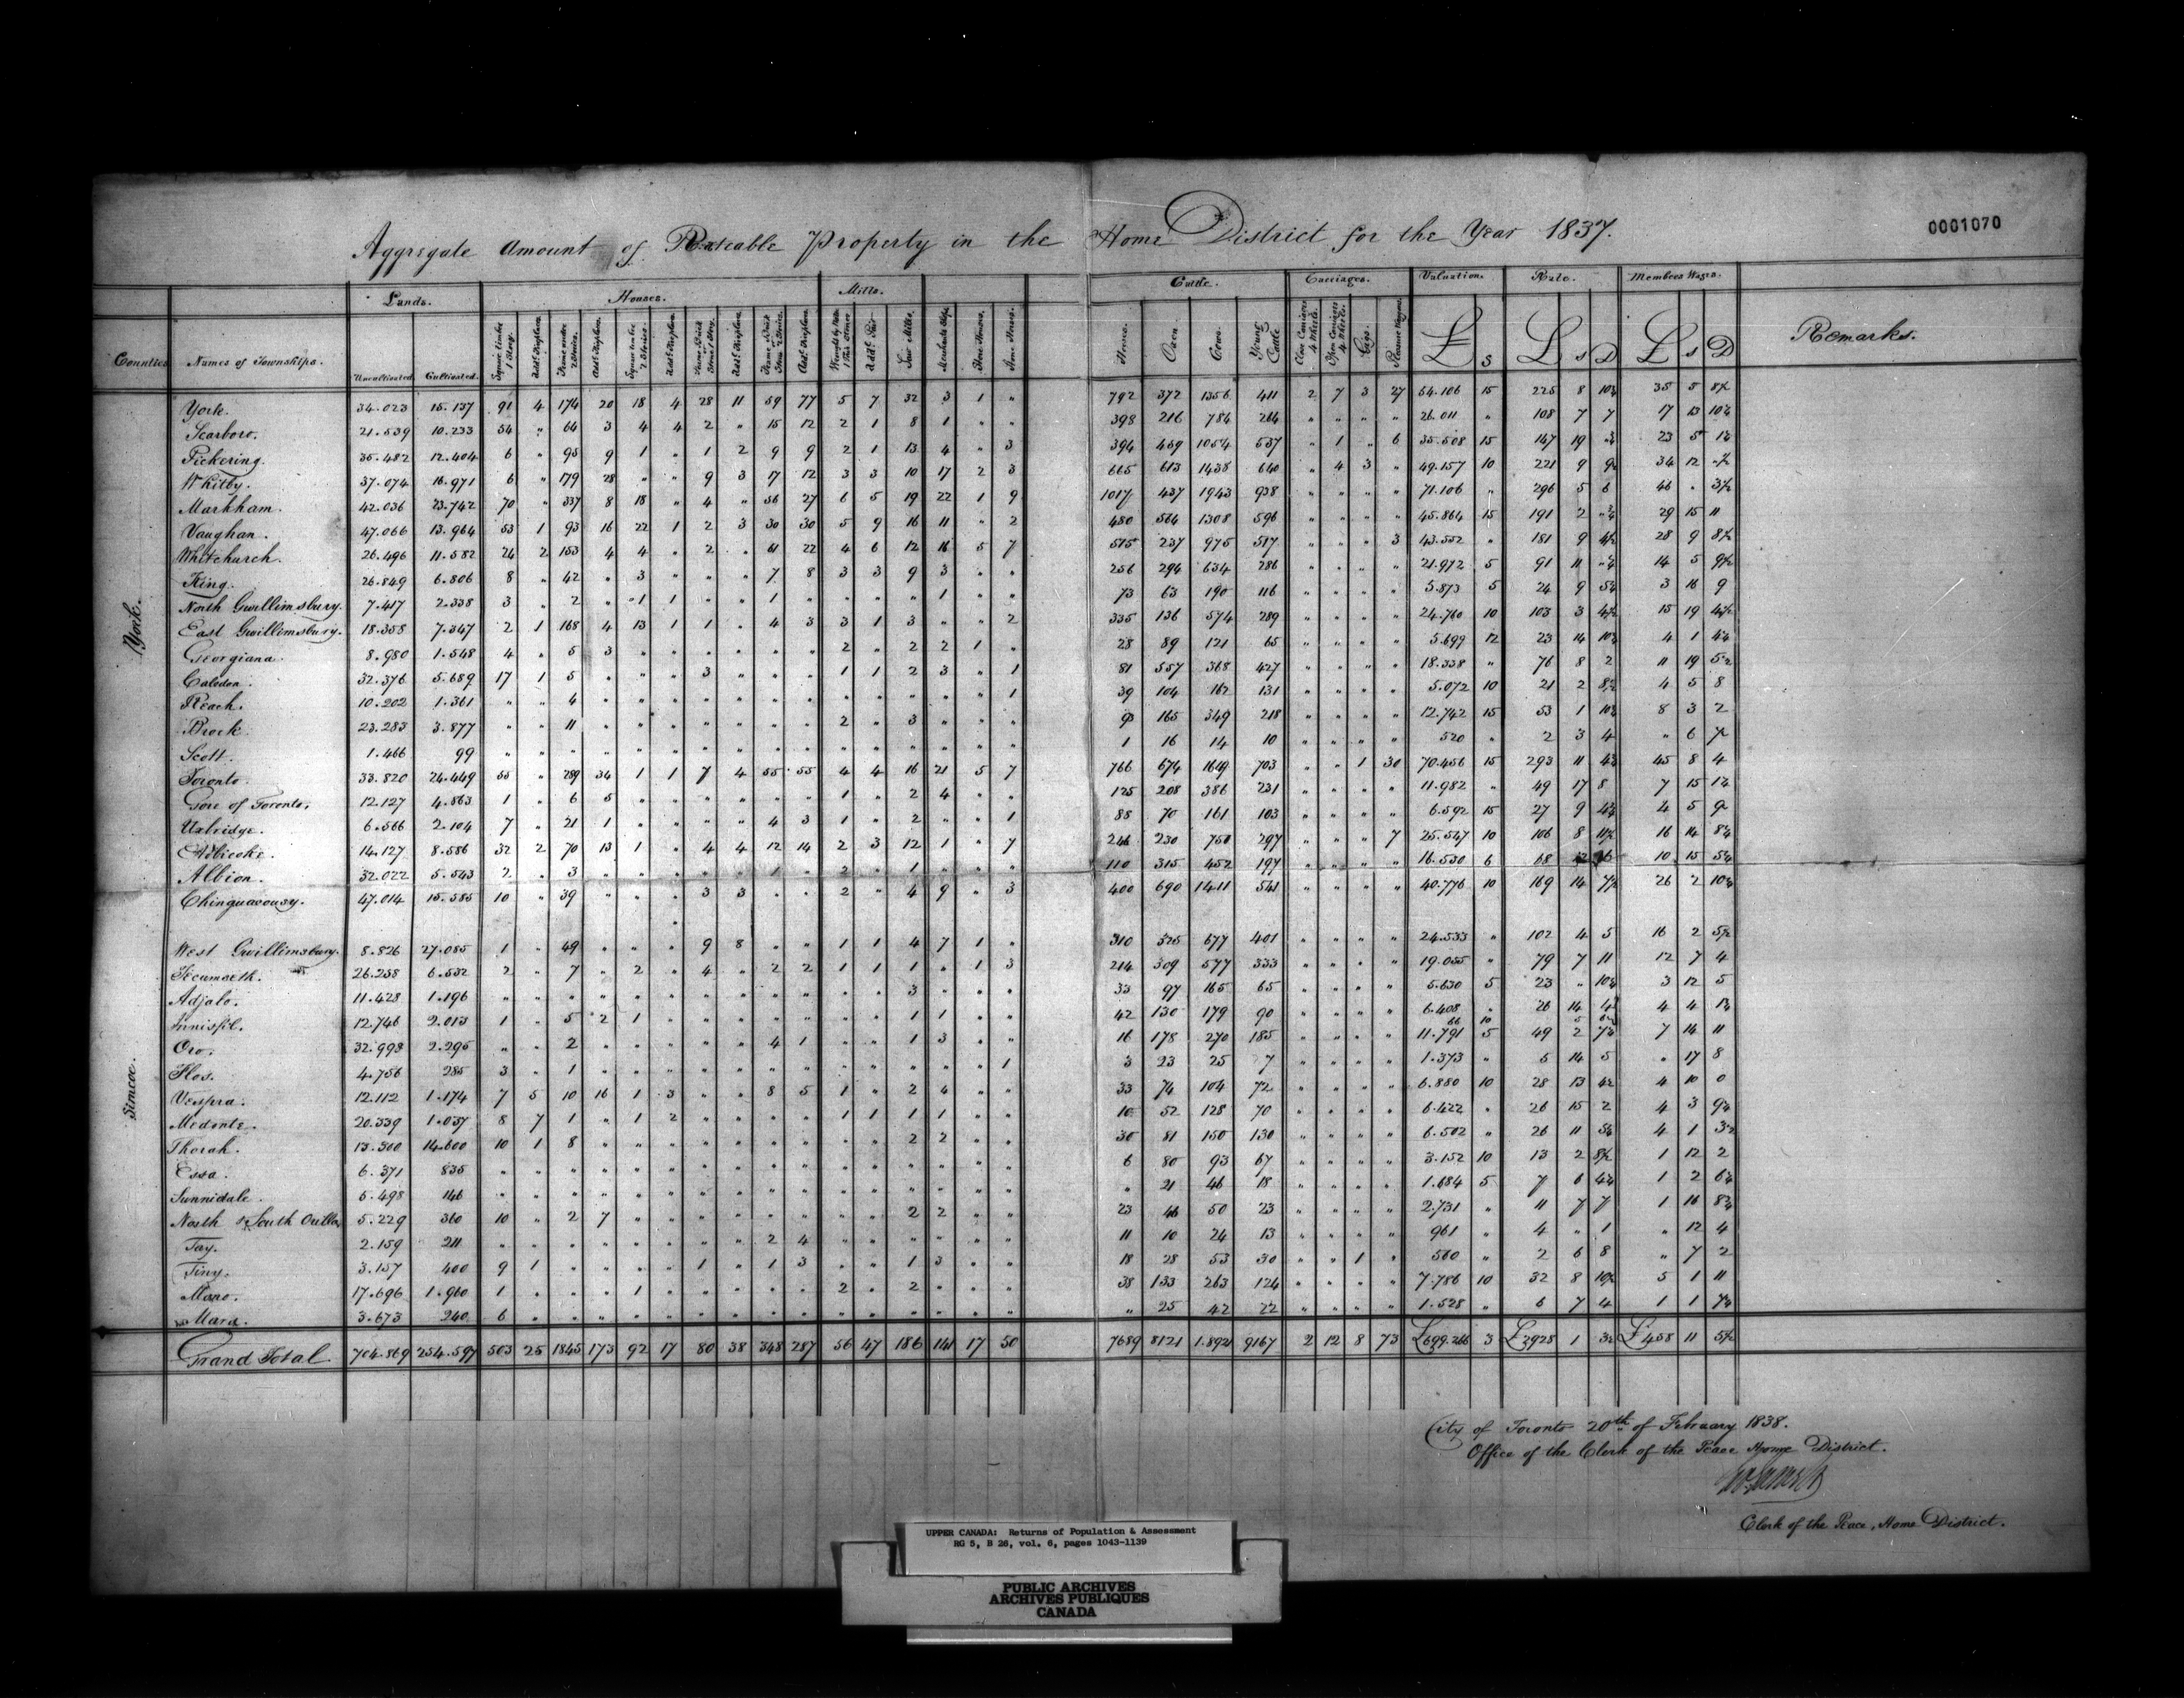 0001070
Aggregate Amount of Rateable Property in the Home District for the Year 1837.
Lands. Houses. Mills. Cattle. Carriages. Valuation. Rate. Members Wages.
Counties Names of Townships. Uncultivated Cultivated Horses. Oxen Cows. Young Cattle £ S £ s D £ s D Remarks.
York.
York. 34.023 15.137 91 4 174 20 18 4 28 11 59 77 5 7 32 3 1 " 792 372 1356 411 2 7 3 27 54.106 15 225 8 35 5
Scarboro. 21.539 10.233 34 " 64 3 4 4 2 " 15 12 2 1 8 1 " " 398 216 784 264 " " " " 26.011 " 108 7 7 17 13
Pickering. 35.482 12.404 6 " 95 9 1 " 1 2 9 9 2 1 13 4 " 3 394 459 1054 537 " 1 " 6 35.508 15 147 19 23 5
Whitby. 37.074 16.971 6 " 179 28 " " 9 3 17 12 3 3 10 17 2 3 665 613 1438 640 " 4 3 " 49.157 10 221 9 34 12
Markham. 42.036 23.742 70 " 337 8 18 " 4 " 56 27 6 5 19 22 1 9 1017 437 1943 938 " " " " 71.106 " 296 5 6 46 "
Vaughan. 47.066 13.964 53 1 93 16 22 1 2 3 30 30 5 9 16 11 " 2 480 564 1308 596 " " " " 45.864 15 191 2 29 15 11
Whitchurch. 26.496 11.582 24 2 153 4 4 " 2 " 61 22 4 6 12 16 5 7 515 237 975 517 " " " 3 43.552 " 181 9 28 9
King. 26.849 6.806 8 " 42 " 3 " " " 7 8 3 3 9 3 " " 256 294 634 286 " " " " 21.972 5 91 11 14 5
North Gwillimsbury. 7.417 2.338 3 " 2 " 1 1 " " 1 " " " " 1 " " 73 63 190 116 " " " " 5.873 5 24 9 3 16 9
East Gwillimsbury. 18.358 7.347 2 1 168 4 13 1 1 " 4 3 3 1 3 " " 2 335 136 574 289 " " " " 24.760 10 103 3 15 19
Georgiana. 8.980 1.548 4 " 5 3 " " " " " " 2 " 2 2 1 " 28 89 121 65 " " " " 5.699 12 23 14 4 1
Caledon. 32.376 5.689 17 1 5 " " " 3 " " " 1 1 2 3 " 1 81 557 368 427 " " " " 18.338 " 76 8 2 11 19
Reach. 10.202 1.361 " " 4 " " " " " " " " " " " " 1 39 104 162 131 " " " " 5.072 10 21 2 4 5 8
Brock. 23.283 3.877 " " 11 " " " " " " " 2 " 3 " " " 165 349 218 " " " " 12.742 15 53 1 8 3 2
Scott. 1.466 99 " " " " " " " " " " " " " " " " 1 16 14 10 " " " " 520 " 2 3 4 " 6
Toronto. 33.820 24.449 55 " 289 34 1 1 7 4 55 55 4 4 16 21 5 7 766 674 1619 703 " " 1 30 70.456 15 293 11 45 8 4
Gore of Toronto. 12.127 4.863 1 " 6 5 " " " " " " 1 " 2 4 " " 125 208 386 231 " " " " 11.982 " 49 17 8 7 15
Uxbridge. 6.566 2.104 7 " 21 1 " " " " 4 3 1 " 2 " " 1 88 70 161 103 " " " " 6.592 15 27 9 4 5
Etobicoke. 14.127 8.586 32 2 70 13 1 " 4 4 12 14 2 3 12 1 " 7 246 230 750 297 " " " 7 25.547 10 106 8 16 14
Albion. 32.022 5.543 2 " 3 " " " " " 1 " 2 " 1 " " " 110 315 452 197 " " " " 16.530 6 68 10 15
Chinguacousy. 47.014 15.585 10 " 39 " " " 3 3 " " 2 " 4 9 " 3 400 690 1411 541 " " " " 40.776 10 169 14 26 2
Simcoe.
West Gwillimsbury. 8.826 27.085 1 " 49 " " " 9 8 " " 1 1 4 7 1 " 310 325 677 401 " " " " 24.533 " 102 4 5 16 2
Tecumseth. 26.238 6.532 2 " 7 " 2 " 4 " 2 2 1 1 1 " 1 3 214 309 577 333 " " " " 19.055 " 79 7 11 12 7 4
Adjala. 11.428 1.196 " " " " " " " " " " " " 3 " " " 33 97 165 65 " " " " 5.530 5 23 " 3 12 5
Innisfil. 12.746 2.013 1 " 5 2 1 " " " " " " " 1 1 " " 42 130 179 90 " " " " 6.408 " 26 14 4 4
66 10 5
Oro. 32.998 2.295 " " 2 " " " " " 4 1 " " 1 3 " " 16 178 270 185 " " " " 11.791 5 49 2 7 14 11
Flos. 4.756 285 3 " 1 " " " " " " " " " " " " 1 3 23 25 7 " " " " 1.373 " 5 14 5 " 17 8
Vespra. 12.112 1.174 7 5 10 16 1 3 " " 8 5 1 " 2 4 " " 33 74 104 72 " " " " 6.880 10 28 13 4 10 0
Medonte. 20.339 1.037 8 7 1 " 1 2 " " " " 1 1 1 1 " " 10 52 128 70 " " " " 6.422 " 26 15 2 4 3
Thorah. 13.300 14.600 10 1 8 " " " " " " " " " 2 2 " " 30 81 150 130 " " " " 6.502 " 26 11 4 1
Essa. 6.371 835 " " " " " " " " " " " " " " " " 6 80 93 67 " " " " 3.152 10 13 2 1 12 2
Sunnidale. 5.498 146 " " " " " " " " " " " " " " " " " 21 46 18 " " " " 1.684 5 7 6 1 2
North & South Orillia 5.229 360 10 " 2 7 " " " " " " " " 2 2 " " 23 46 50 23 " " " " 2.731 " 11 7 7 1 16
Tay. 2.159 211 " " " " " " " " 2 4 " " " " " " 11 10 24 13 " " " " 961 " 4 " 1 " 12 4
Tiny. 3.157 400 9 1 " " " " 1 " 1 3 " " 1 3 " " 18 28 53 30 " " 1 " 560 " 2 6 8 " 7 2
Mono. 17.696 1.960 1 " " " 1 " " " " " 2 " 2 " " " 38 133 263 124 " " " " 7.786 10 32 8 5 1 11
Mara. 3.673 240 6 " " " " " " " " " " " " " " " " 25 42 22 " " " " 1.528 " 6 7 4 1 1
Grand Total 704.869 254.597 503 25 1845 173 92 17 80 38 348 287 56 47 186 141 17 50 7689 8121 1.8921 9167 2 12 8 73 £699.266 3 £2928 1 £458 11
City of Toronto 20th of February 1838.
Office of the Clerk of the Peace Home District.
Clerk of the Peace, Home District.
UPPER CANADA: Returns of Population & Assessment
RG 5, B 26, vol. 6, pages 1043-1139
PUBLIC ARCHIVES
ARCHIVES PUBLIQUES
CANADA